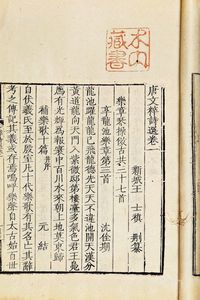 藏書
唐文粹詩選卷一
新城王 士禛 刪纂
樂章琴操倣古共二十七首
享龍池樂章第三首 沈佺期
龍池躍龍龍已飛龍德先天天不違池開天漢分
黃道龍向天門入紫微邸第樓臺多氣色君王鳧
鴈有光輝爲報寰中百川水來朝上地莫東歸
補樂歌十篇并序 元結
自伏羲氏至於殷室凡十代樂歌有其名亡其辭
考之傳記其義或存焉嗚呼樂聲自太古始百世